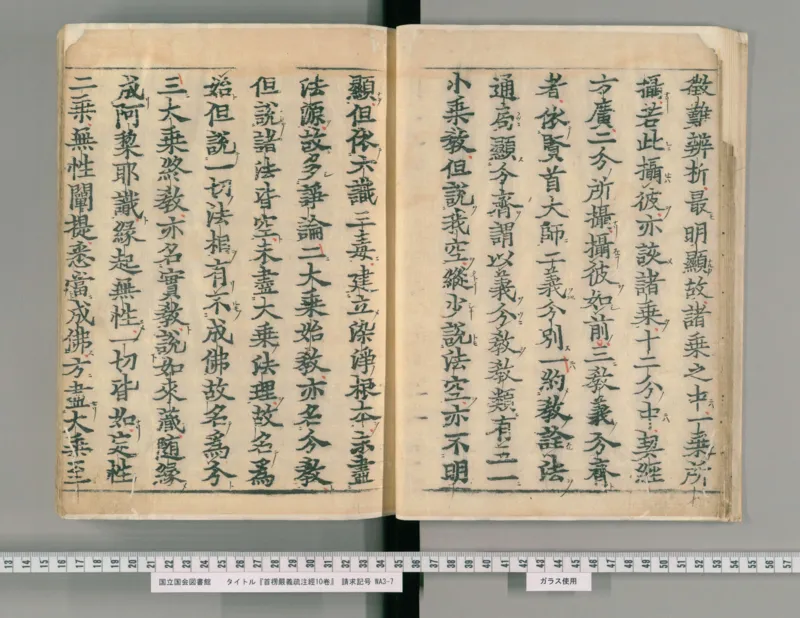 徵難辨析最明顯故諸乘之中一乘所
攝若此攝彼亦該諸乘十二分中契經
方廣二分所攝攝彼如前三教義分齊
者依賢首大師五義分別一約教詮法
通局顯分齊謂以義分教教類有五一
小乘教但說我空縱少說法空亦不明
顯但依六識三毒建立染淨根本未盡
法源故多諍論二大乘始教亦名分教
但說諸法皆空未盡大乘法理故名為
始但說一切法相有不成佛故名為分
三大乘終教亦名實教說如來藏隨緣
成阿黎耶識緣起無性一切皆如定性
二乘無性闡提悉當成佛方盡大乘至
13 14 15 16 17 18 19 20 21 22 23 24 25 26 27 28 29 30 31 32 33 34 35 36 37 38 39 40 41 42 43 44 45 46 47 48 49 50 51 52 53 54 55 56 57
国立国会図書館 タイトル『首楞嚴義疏注經10巻』 請求記号 WA3-7
ガラス使用